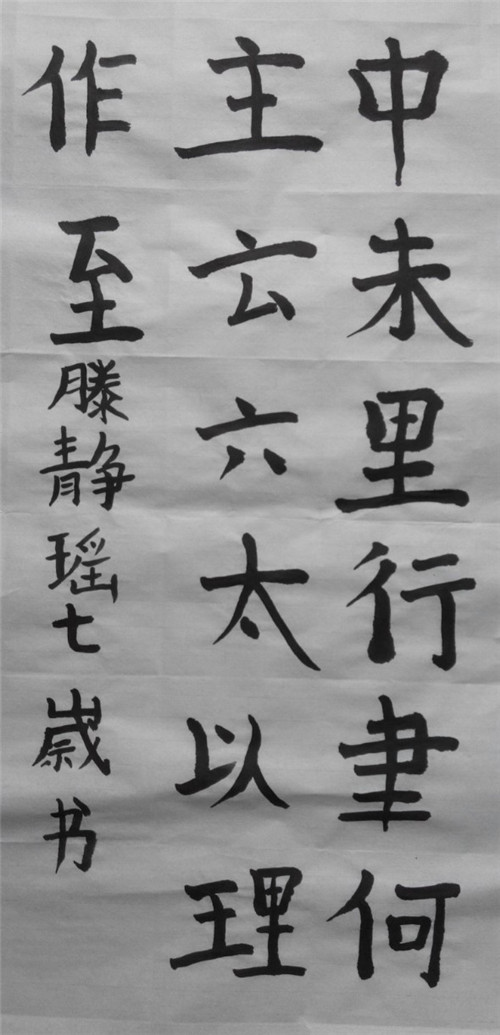 中未里行聿何
主厷六太以理
作至滕静瑶七歲书